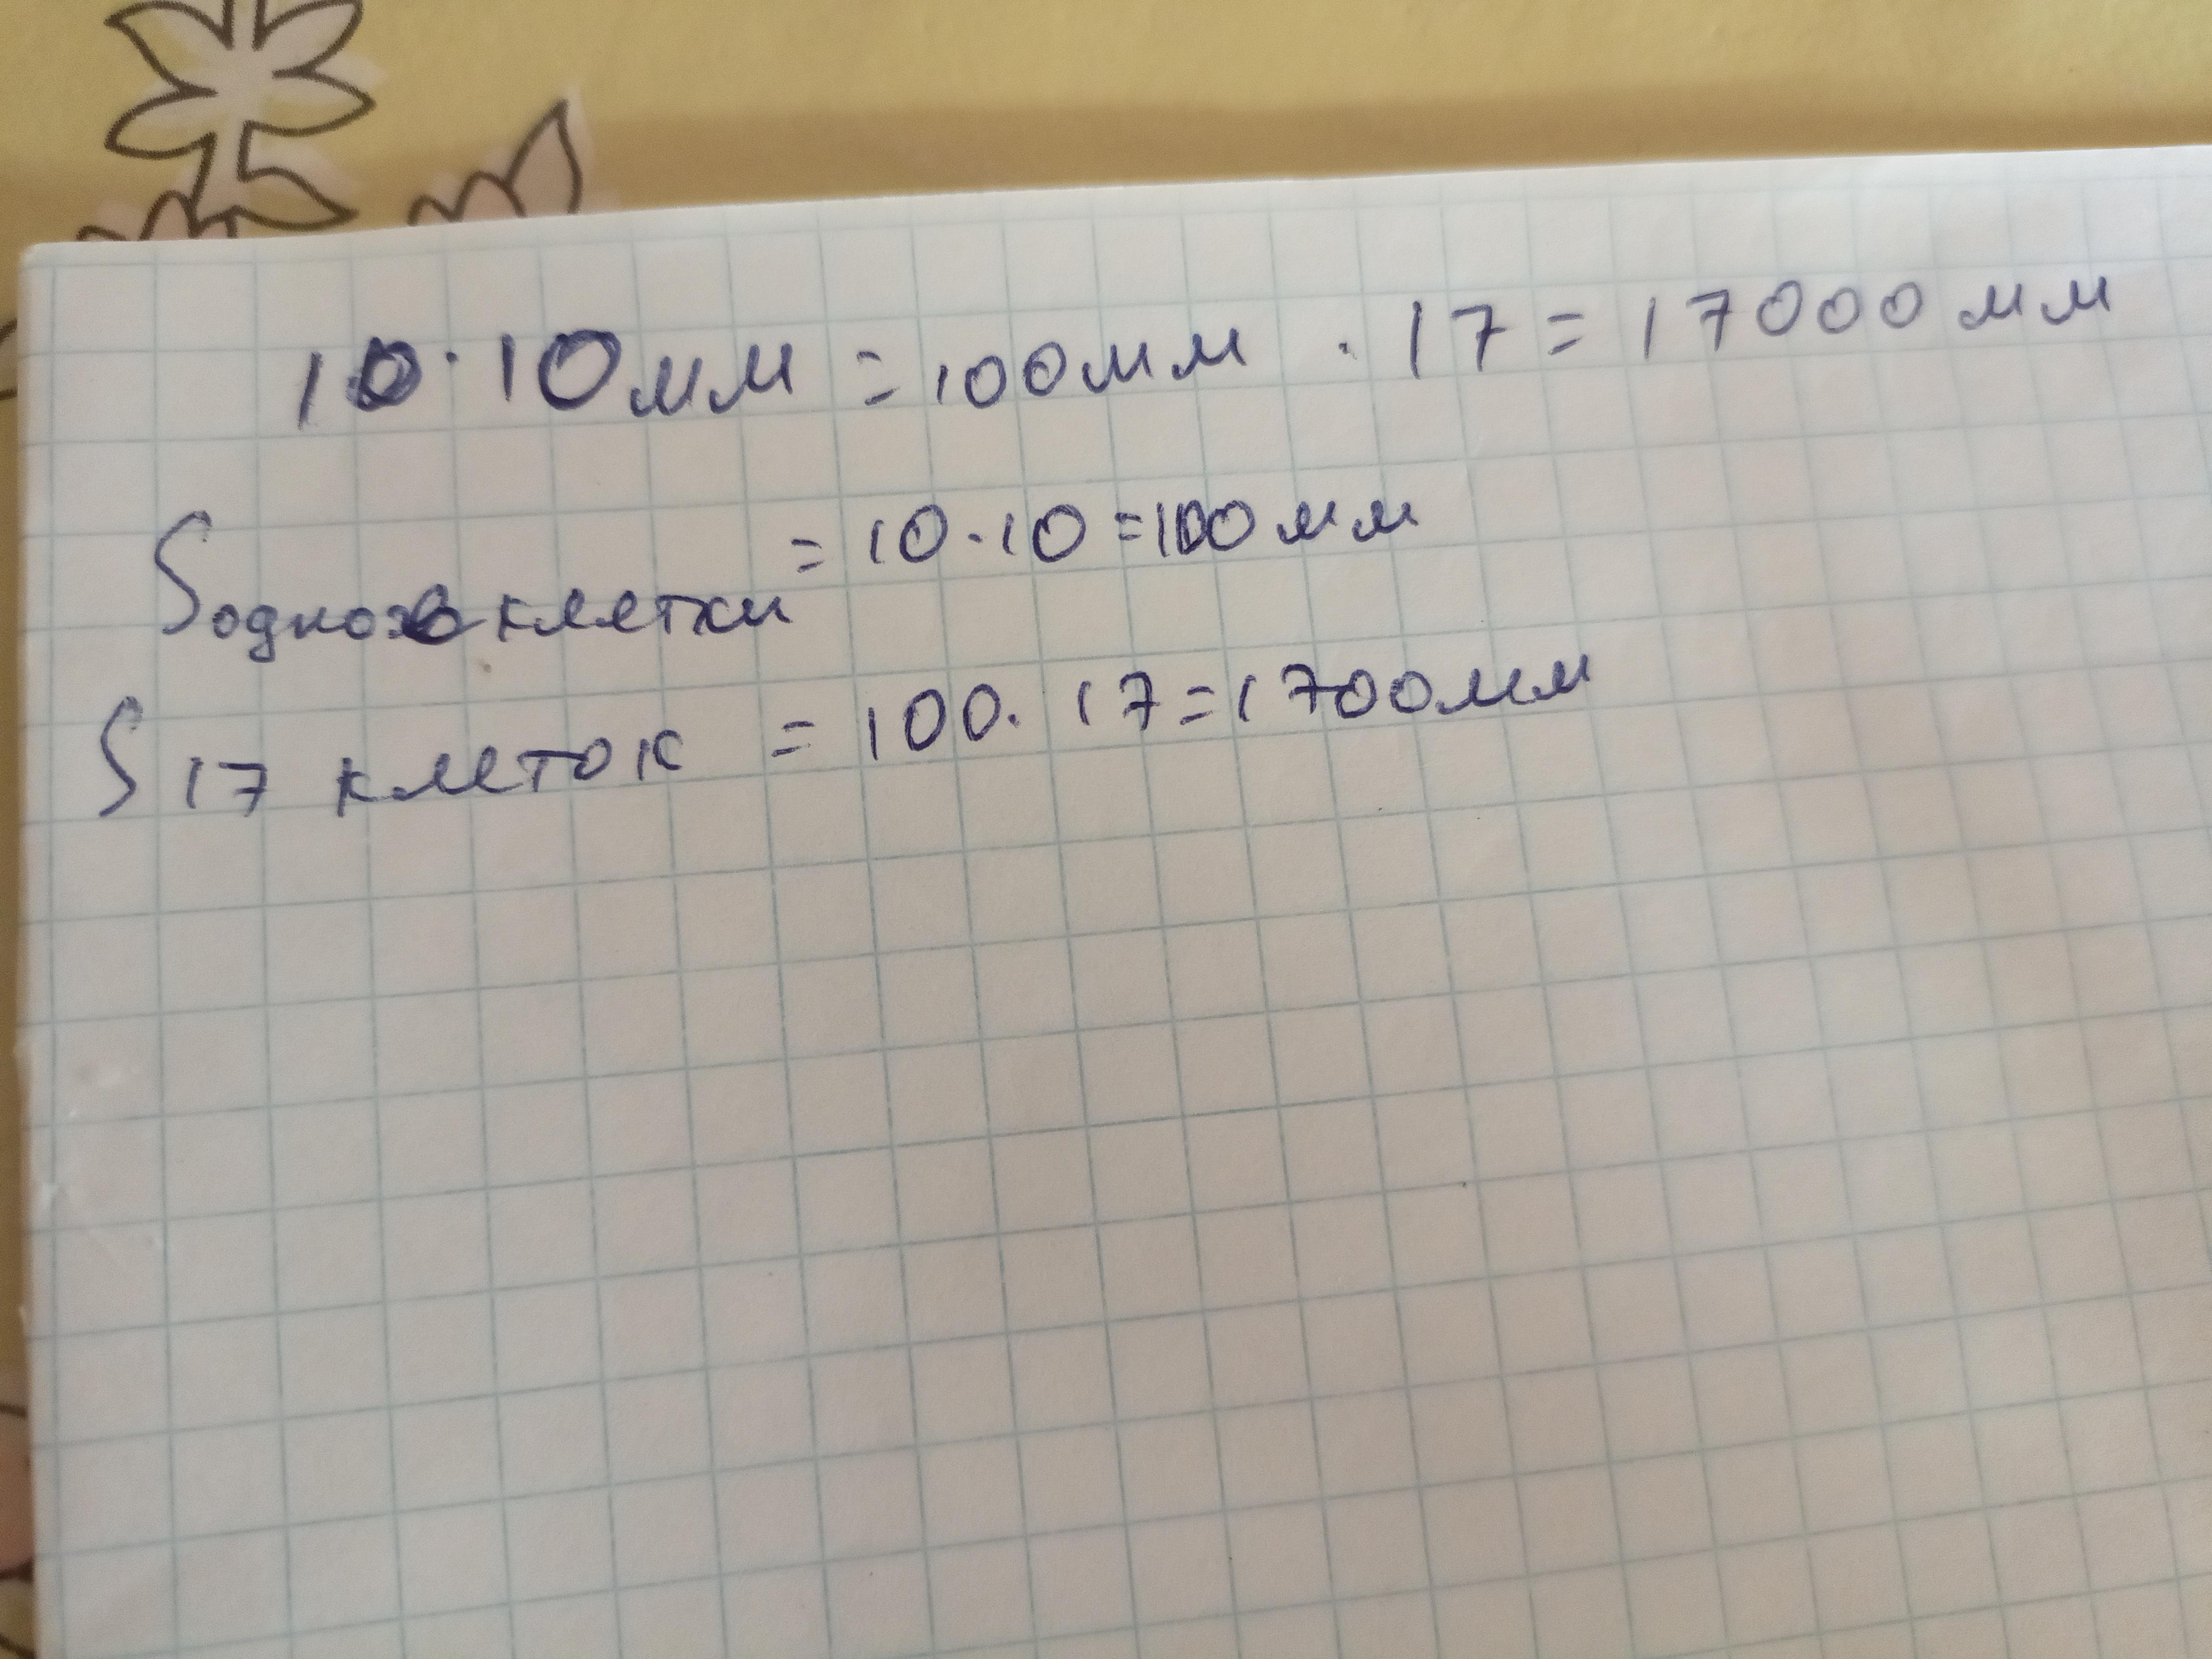 10·10мм = 100мм · 17 = 17000 мм
S одной клетки = 10·10 = 100 мм
S 17 клеток = 100·17 = 1700мм